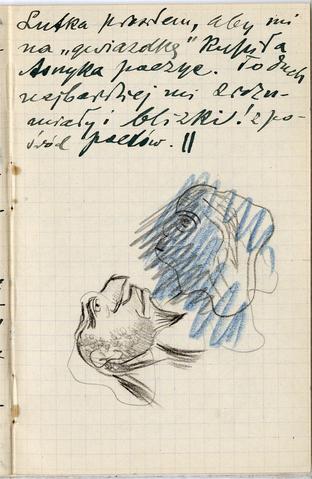 Lutka prosiłem, aby mi
na „gwiazdkę" kupiła
Asnyka poezye. To duch
najbardziej mi zrozu-
miały i blizki! z po-
śród poetów. ||